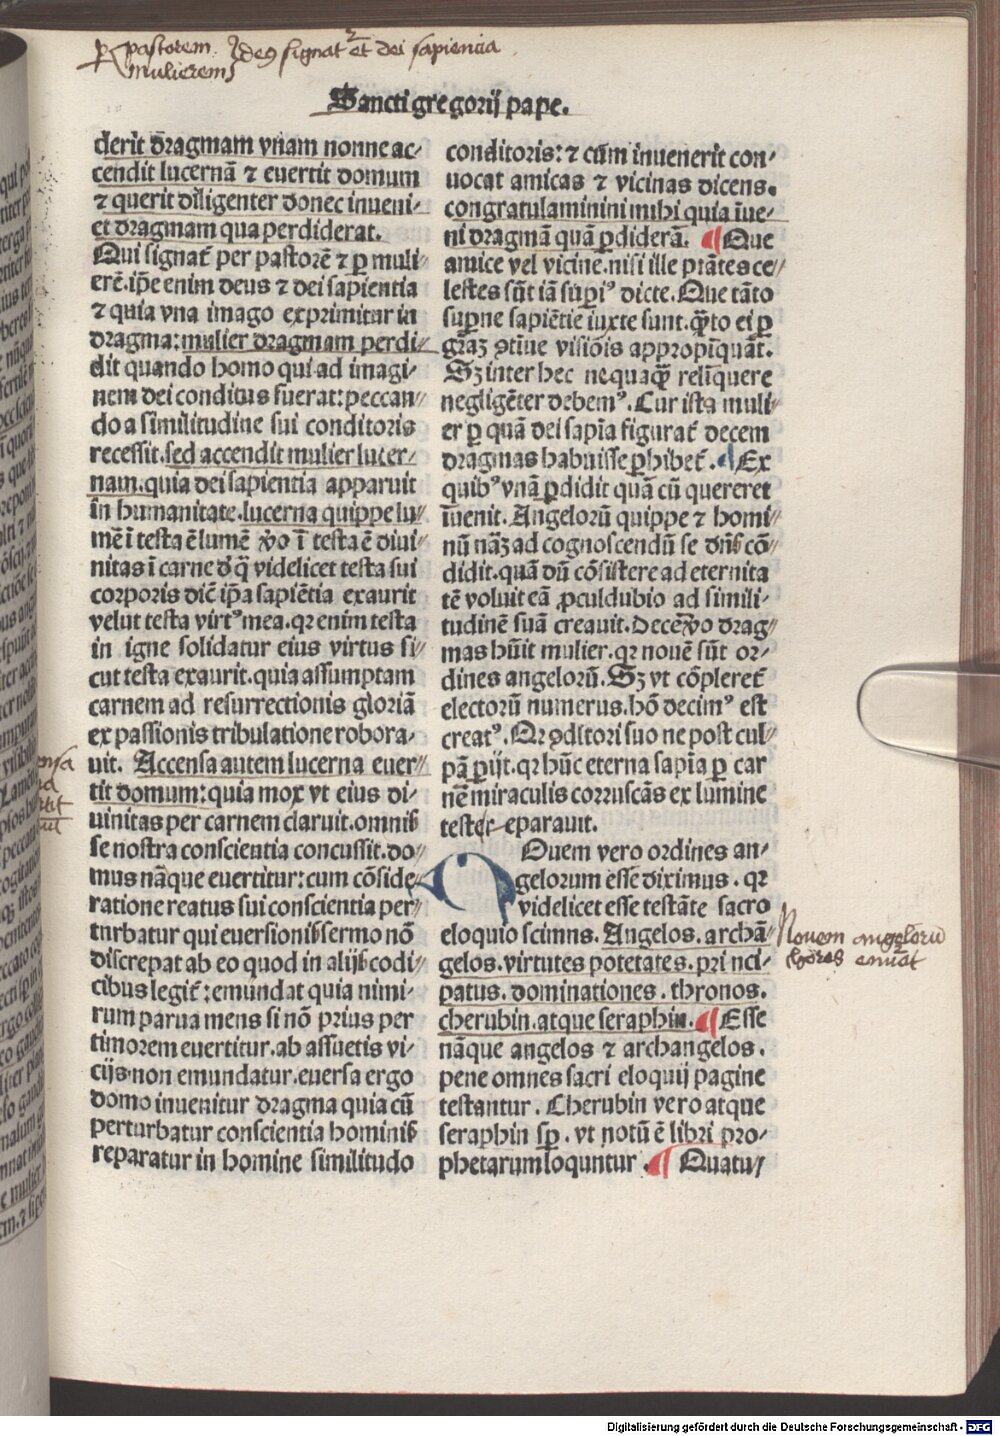 pastorem
mulierem
deꝰ signat᷑ et dei sapiencia
Sancti gregorij pape.
derit dragmam vnam nonne ac⸗
cendit lucernã ⁊ euertit domum
⁊ querit diligenter donec inueni⸗
et dragmam qua perdiderat.
Qui signat᷑ per pastorẽ ⁊ ꝑ muli
erẽ. ip̃e enim deus ⁊ dei sapientia
⁊ quia vna imago exprimitur in
dragma: mulier dragmam perdi⸗
dit quando homo qui ad imagi⸗
nem dei conditus fuerat: peccan⸗
do a similitudine sui conditoris
recessit. sed accendit mulier lucer⸗
nam. quia dei sapientia apparuit
in humanitate. lucerna quippe lu⸗
mẽ ĩ testa ẽ lumẽ v̾o ĩ testa ẽ diui⸗
nitas ĩ carne d̾ q̃ videlicet testa sui
corporis dic̃ ip̃a sapiẽtia exaurit
velut testa virtꝰ mea. qꝛ enim testa
in igne solidatur eius virtus si⸗
cut testa exaurit. quia assumptam
carnem ad resurrectionis gloriã
ex passionis tribulatione robora⸗
uit. Accensa autem lucerna euer⸗
tit domum: quia mox vt eius di⸗
uinitas per carnem claruit. omnis
se nostra conscientia concussit. do⸗
mus nãque euertitur: cum cõside⸗
ratione reatus sui conscientia per⸗
turbatur qui euersionis sermo nõ
discrepat ab eo quod in alijs codi⸗
cibus legit᷑: emundat quia nimi⸗
rum parua mens si nõ prius per
timorem euertitur. ab assuetis vi⸗
cijs non emundatur. euersa ergo
domo inuenitur dragma quia cũ
perturbatur conscientia hominis
reparatur in homine similitudo
conditoris: ⁊ cũm inuenerit con⸗
uocat amicas ⁊ vicinas dicens.
congratulaminini mihi quia ĩue⸗
ni dragmã quã ꝑdiderã. ¶ Que
amice vel vicine. nisi ille prãtes ce⸗
lestes sũt iã sup̃iꝰ dicte. Que tãto
sup̃ne sapiẽtie iuxte sunt. q̃to ei ꝑ
grãꝫ ꝯtiue visiõis appropĩquãt.
Sꝫ inter hec nequaq̃ȝ relĩquere
negligẽter debemꝰ. Cur ista muli⸗
er ꝑ quã dei sapĩa figurat᷑ decem
dragmas habuisse ꝑhibet᷑. ¶ Ex
quibꝰ vnã ꝑdidit quã cũ quereret
ĩuenit. Angelorũ quippe ⁊ homi⸗
nũ nãꝫ ad cognoscendũ se dñs cõ⸗
didit. quã dũ cõsistere ad eternita
tẽ voluit eã ꝓculdubio ad simili⸗
tudinẽ suã creauit. Decẽ v̾o drag⸗
mas hũit mulier. qꝛ nouẽ sũt or⸗
dines angelorũ. Sꝫ vt cõpleret᷑
electorũ numerus. hõ decimꝰ est
creatꝰ. Qꝛ ꝯditori suo ne post cul⸗
pã ꝑijt. qꝛ hũc eterna sapĩa ꝑ car
nẽ miraculis corruscãs ex lumine
teste reparauit.
Quem vero ordines an⸗
gelorum esse diximus. qꝛ
videlicet esse testãte sacro
eloquio scimns. Angelos. archã⸗
gelos. virtutes potetates. princi⸗
patus. dominationes. thronos.
cherubin. atque seraphin. ¶ Esse
nãque angelos ⁊ archangelos.
pene omnes sacri eloquij pagine
testantur. Cherubin vero atque
seraphin sp̱. vt notũ ẽ libri pro⸗
phetarum loquntur. ¶ Quatu⸗
Nouem angelorũ